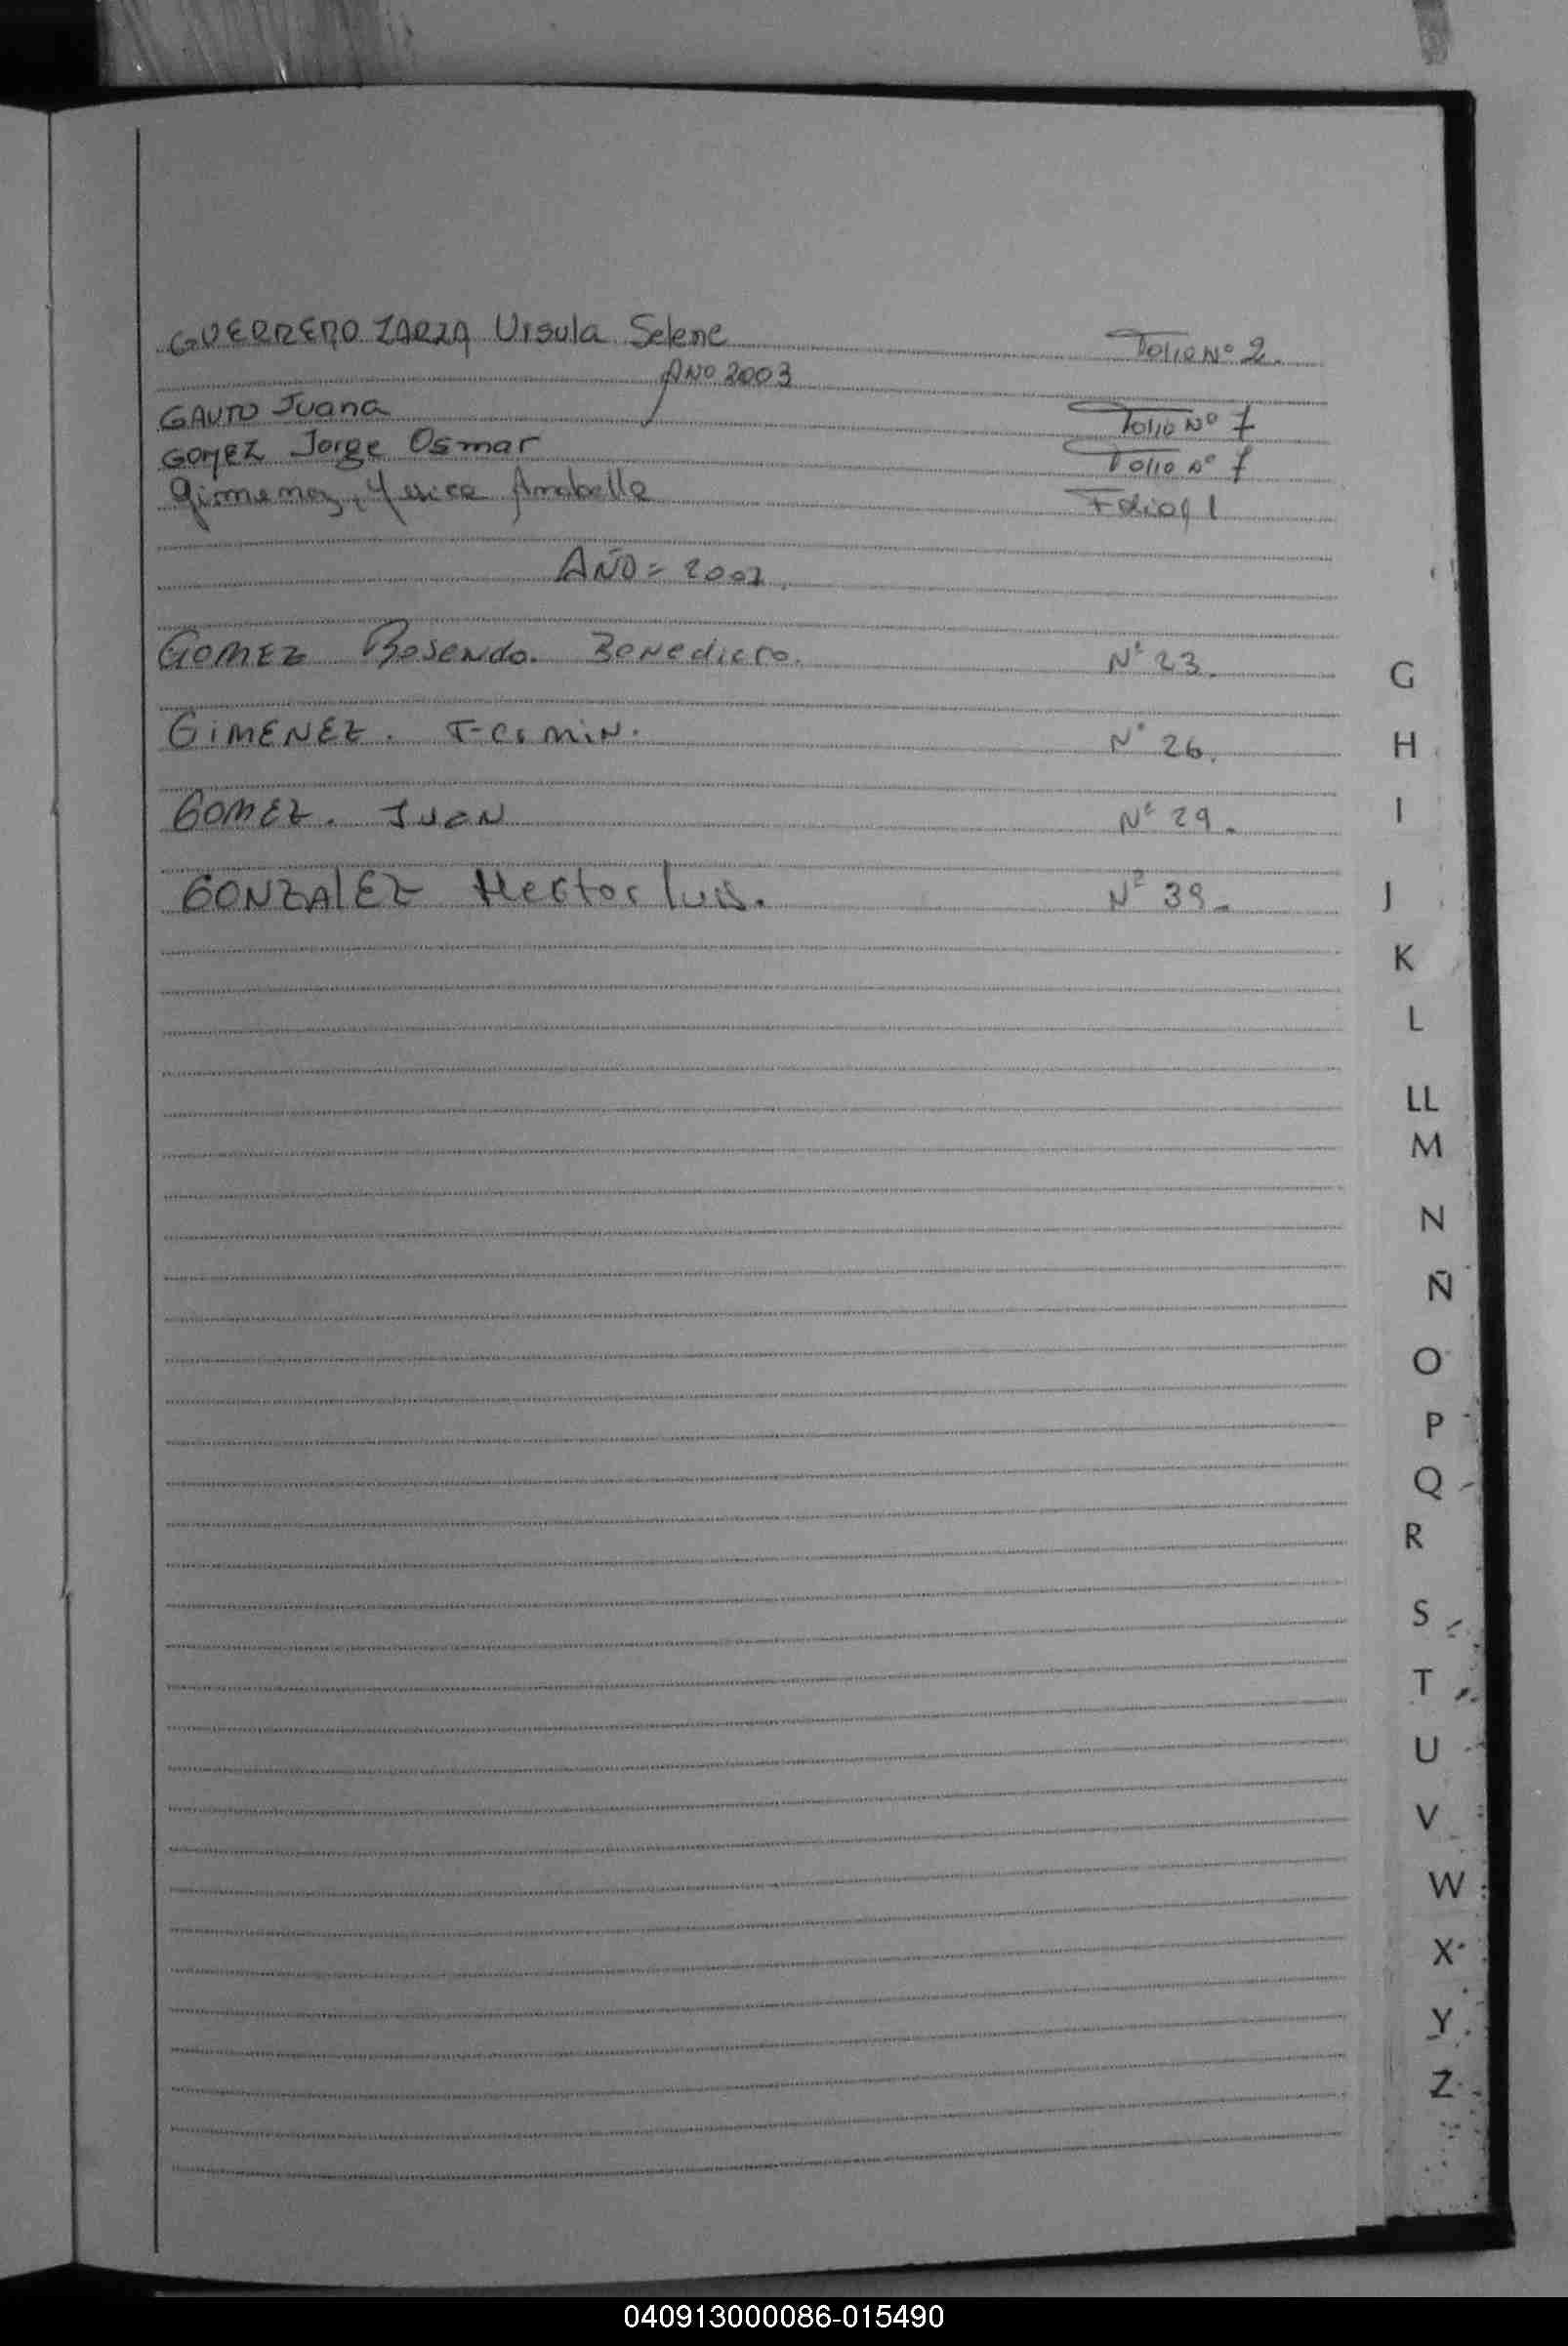 GUERRERO ZARZA Ursula Selene Folio Nº 2.
AÑO 2003
GAUTO Juana Folio Nº 7
GOMEZ Jorge Osmar Folio Nº 7
Gimenez, Yesica Anabella Folio 91
AÑO = 2007.
GOMEZ Rosendo. Benedicto. Nº 23.
GIMENEZ. Nº 26.
GOMEZ. Juan Nº 29.
GONZALEZ Hector luis. Nº 39.
G
H
I
J
K
L
LL
M
N
Ñ
O
P
Q
R
S
T
U
V
W
X
Y
Z
040913000086-015490